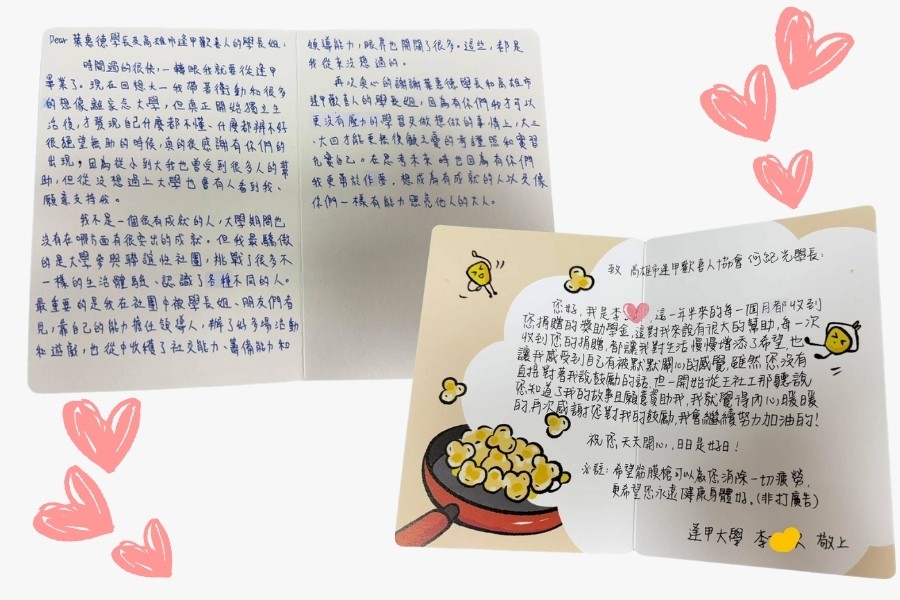 Dear 葉惠德學長及高雄市逢甲歡喜人的學長姐,
時間過的很快,一轉眼我就要從逢甲
畢業了。現在回想大一我帶著衝動和很多
的想像離家念大學,但真正開始獨立生
活後,才發現自己什麼都不懂、什麼都辦不好
很絕望無助的時候,真的很感謝有你們的
出現,因為從小到大我也曾受到很多人的幫
助,但從沒想過上大學也會有人看到我、
願意支持我。
我不是一個很有成就的人,大學期間也
沒有在哪方面有很突出的成就。但我最驕傲
的是大學參與聯誼性社團,挑戰了很多不
一樣的生活體驗、認識了各種不同的人。
最重要的是我在社團中被學長姐、朋友們看
見,靠自己的能力擔任領導人,辦了好多場活動
和遊戲,也從中收穫了社交能力、籌備能力和
領導能力,眼界也開闊了很多。這些,都是
我從來沒想過的。
再次衷心的謝謝葉惠德學長和高雄市
逢甲歡喜人的學長姐,因為有你們我才可以
更沒有壓力的學習及做想做的事情上,大三、
大四才能更無後顧之憂的考證照和實習
充實自己。在思考未來時也因為有你們
我更勇於作夢。想成為有成就的人以及像
你們一樣有能力照亮他人的大人。
致 高雄市逢甲歡喜人協會 何紀光學長:
您好,我是李 這一年半來的每一個月都收到
您捐贈的獎助學金,這對我來說有很大的幫助,每一次
收到您的捐贈,都讓我對生活慢慢增添了希望,也
讓我感受到自己有被默默關心的感覺,雖然您沒有
直接對著我說鼓勵的話,但一開始從王社工那聽說
您知道了我的故事且願意資助我,我就覺得內心暖暖
的,再次感謝您對我的鼓勵,我會繼續努力加油的!
祝您天天開心,日日是好日!
必註:希望筋膜槍可以為您消除一切疲勞,
更希望您永遠健康身體好。(非打廣告)
逢甲大學 李 敬上